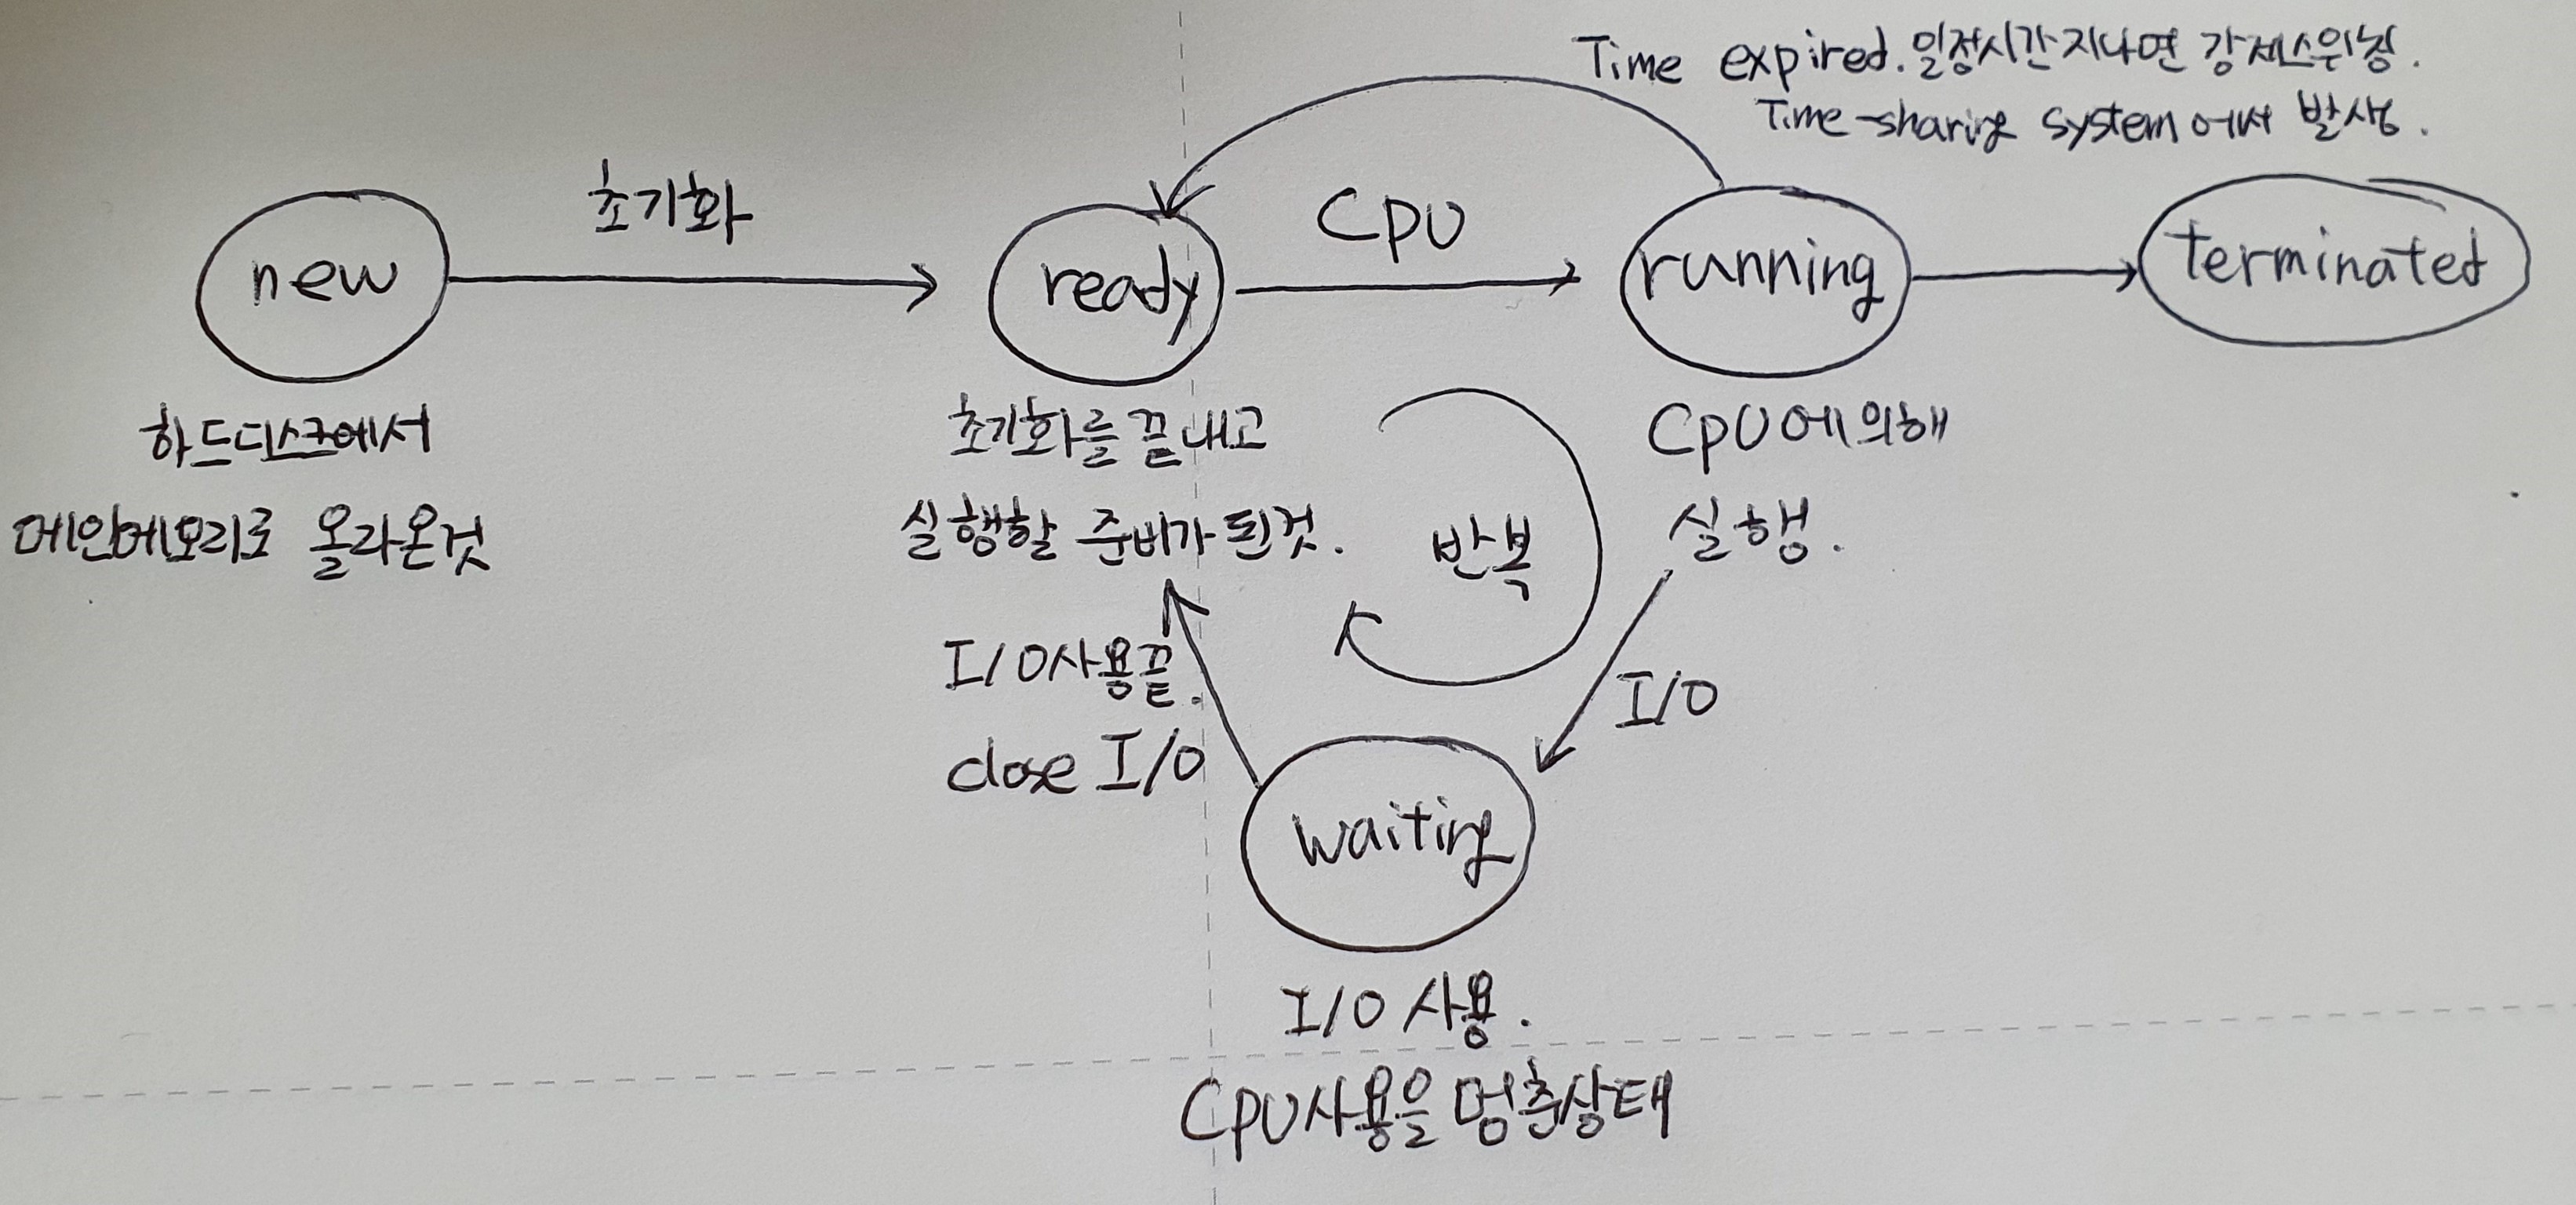 Time expired. 일정시간 지나면 강제스위칭.
Time-sharing system에서 발생.
초기화
CPU
new
ready
running
terminated
하드디스크에서
메인메모리로 올라온것
초기화를 끝내고
실행할 준비가 된것.
반복
CPU에 의해
실행.
I/O사용끝.
close I/O
I/O
waiting
I/O 사용.
CPU사용을 멈춘상태